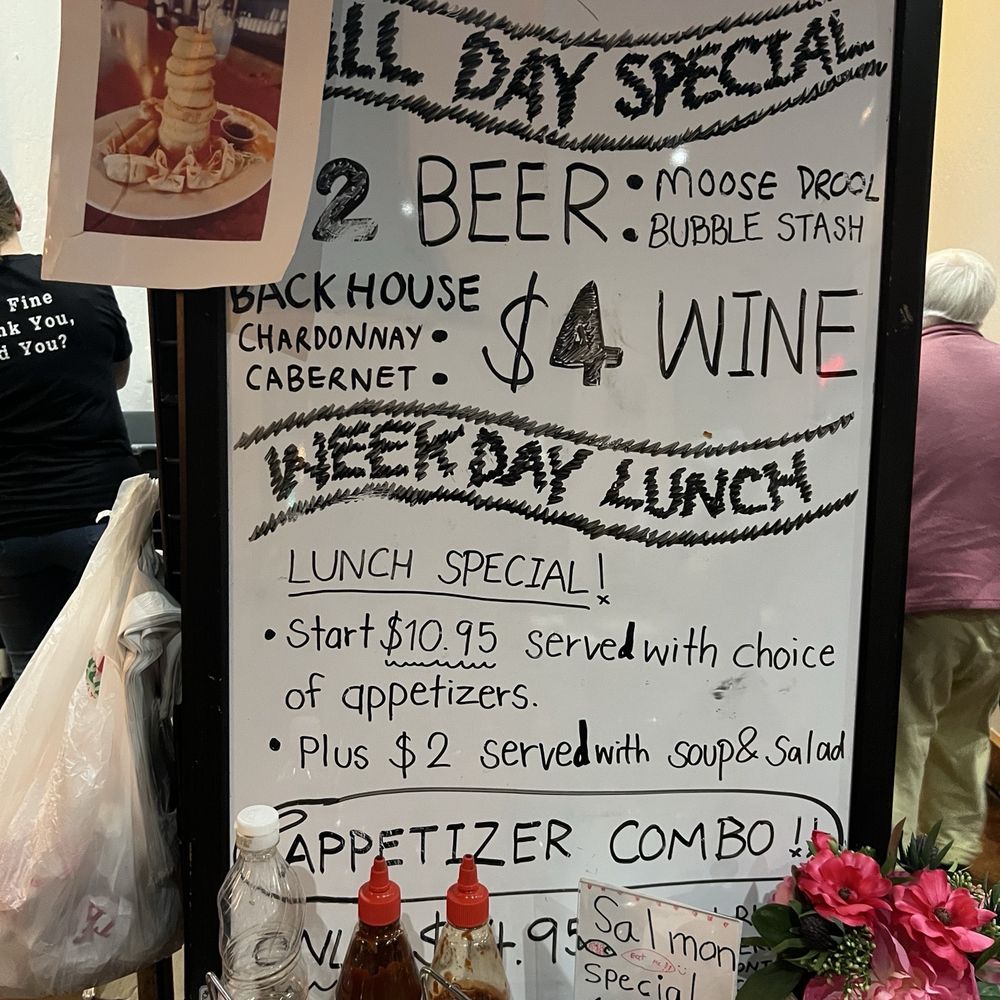 ALL DAY SPECIAL
2 BEER • MOOSE DROOL
• BUBBLE STASH
BACK HOUSE
CHARDONNAY •
CABERNET •
$4 WINE
WEEKDAY LUNCH
LUNCH SPECIAL!
• Start $10.95 served with choice
of appetizers.
• Plus $2 served with soup & Salad
APPETIZER COMBO !!
Salmon
Special
Fine
You,
You?